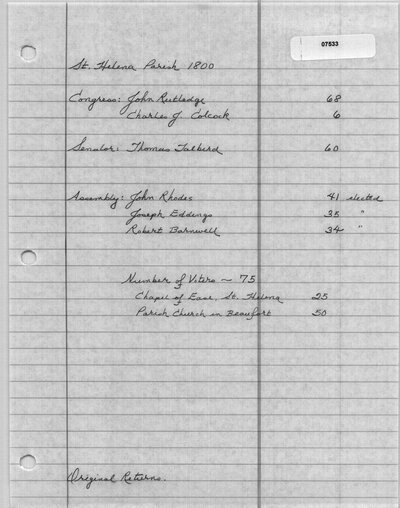 07533
St. Helena Parish 1800
Congress: John Rutledge 68
Charles J. Colcock 6
Senator: Thomas Talbird 60
Assembly: John Rhodes 41 elected
Joseph Eddings 35 "
Robert Barnwell 34 "
Number of Voters - 75
Chapel of Ease, St. Helena 25
Parish Church in Beaufort 50
Original Returns.